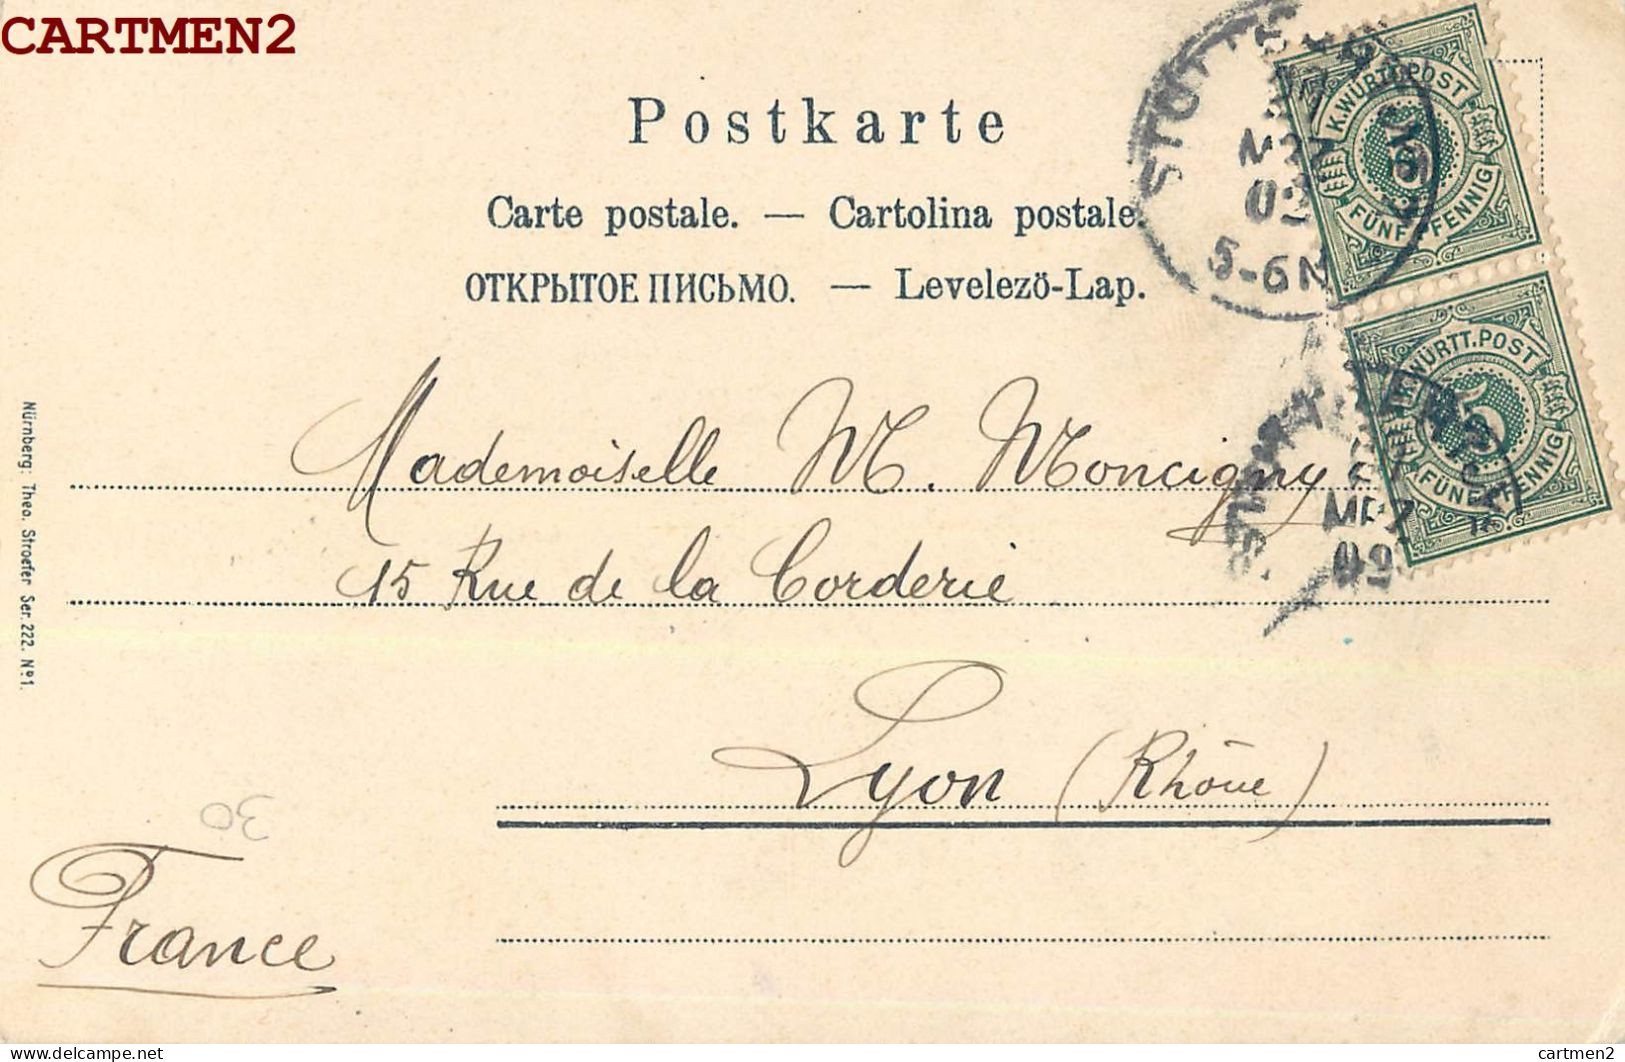 CARTMEN2
Postkarte
Carte postale. — Cartolina postale.
ОТКРЫТОЕ ПИСЬМО. — Levelezö-Lap.
K.WÜRTT.POST
5
FÜNF PFENNIG
02
5-6N
K.WÜRTT.POST
5
FÜNF PFENNIG
MRZ
02
Mademoiselle M. Moncigny
15 Rue de la Corderie
Lyon (Rhône)
30
France
Nürnberg: Theo. Stroefer Ser. 222. Nº 1.
delcampe.net
cartmen2